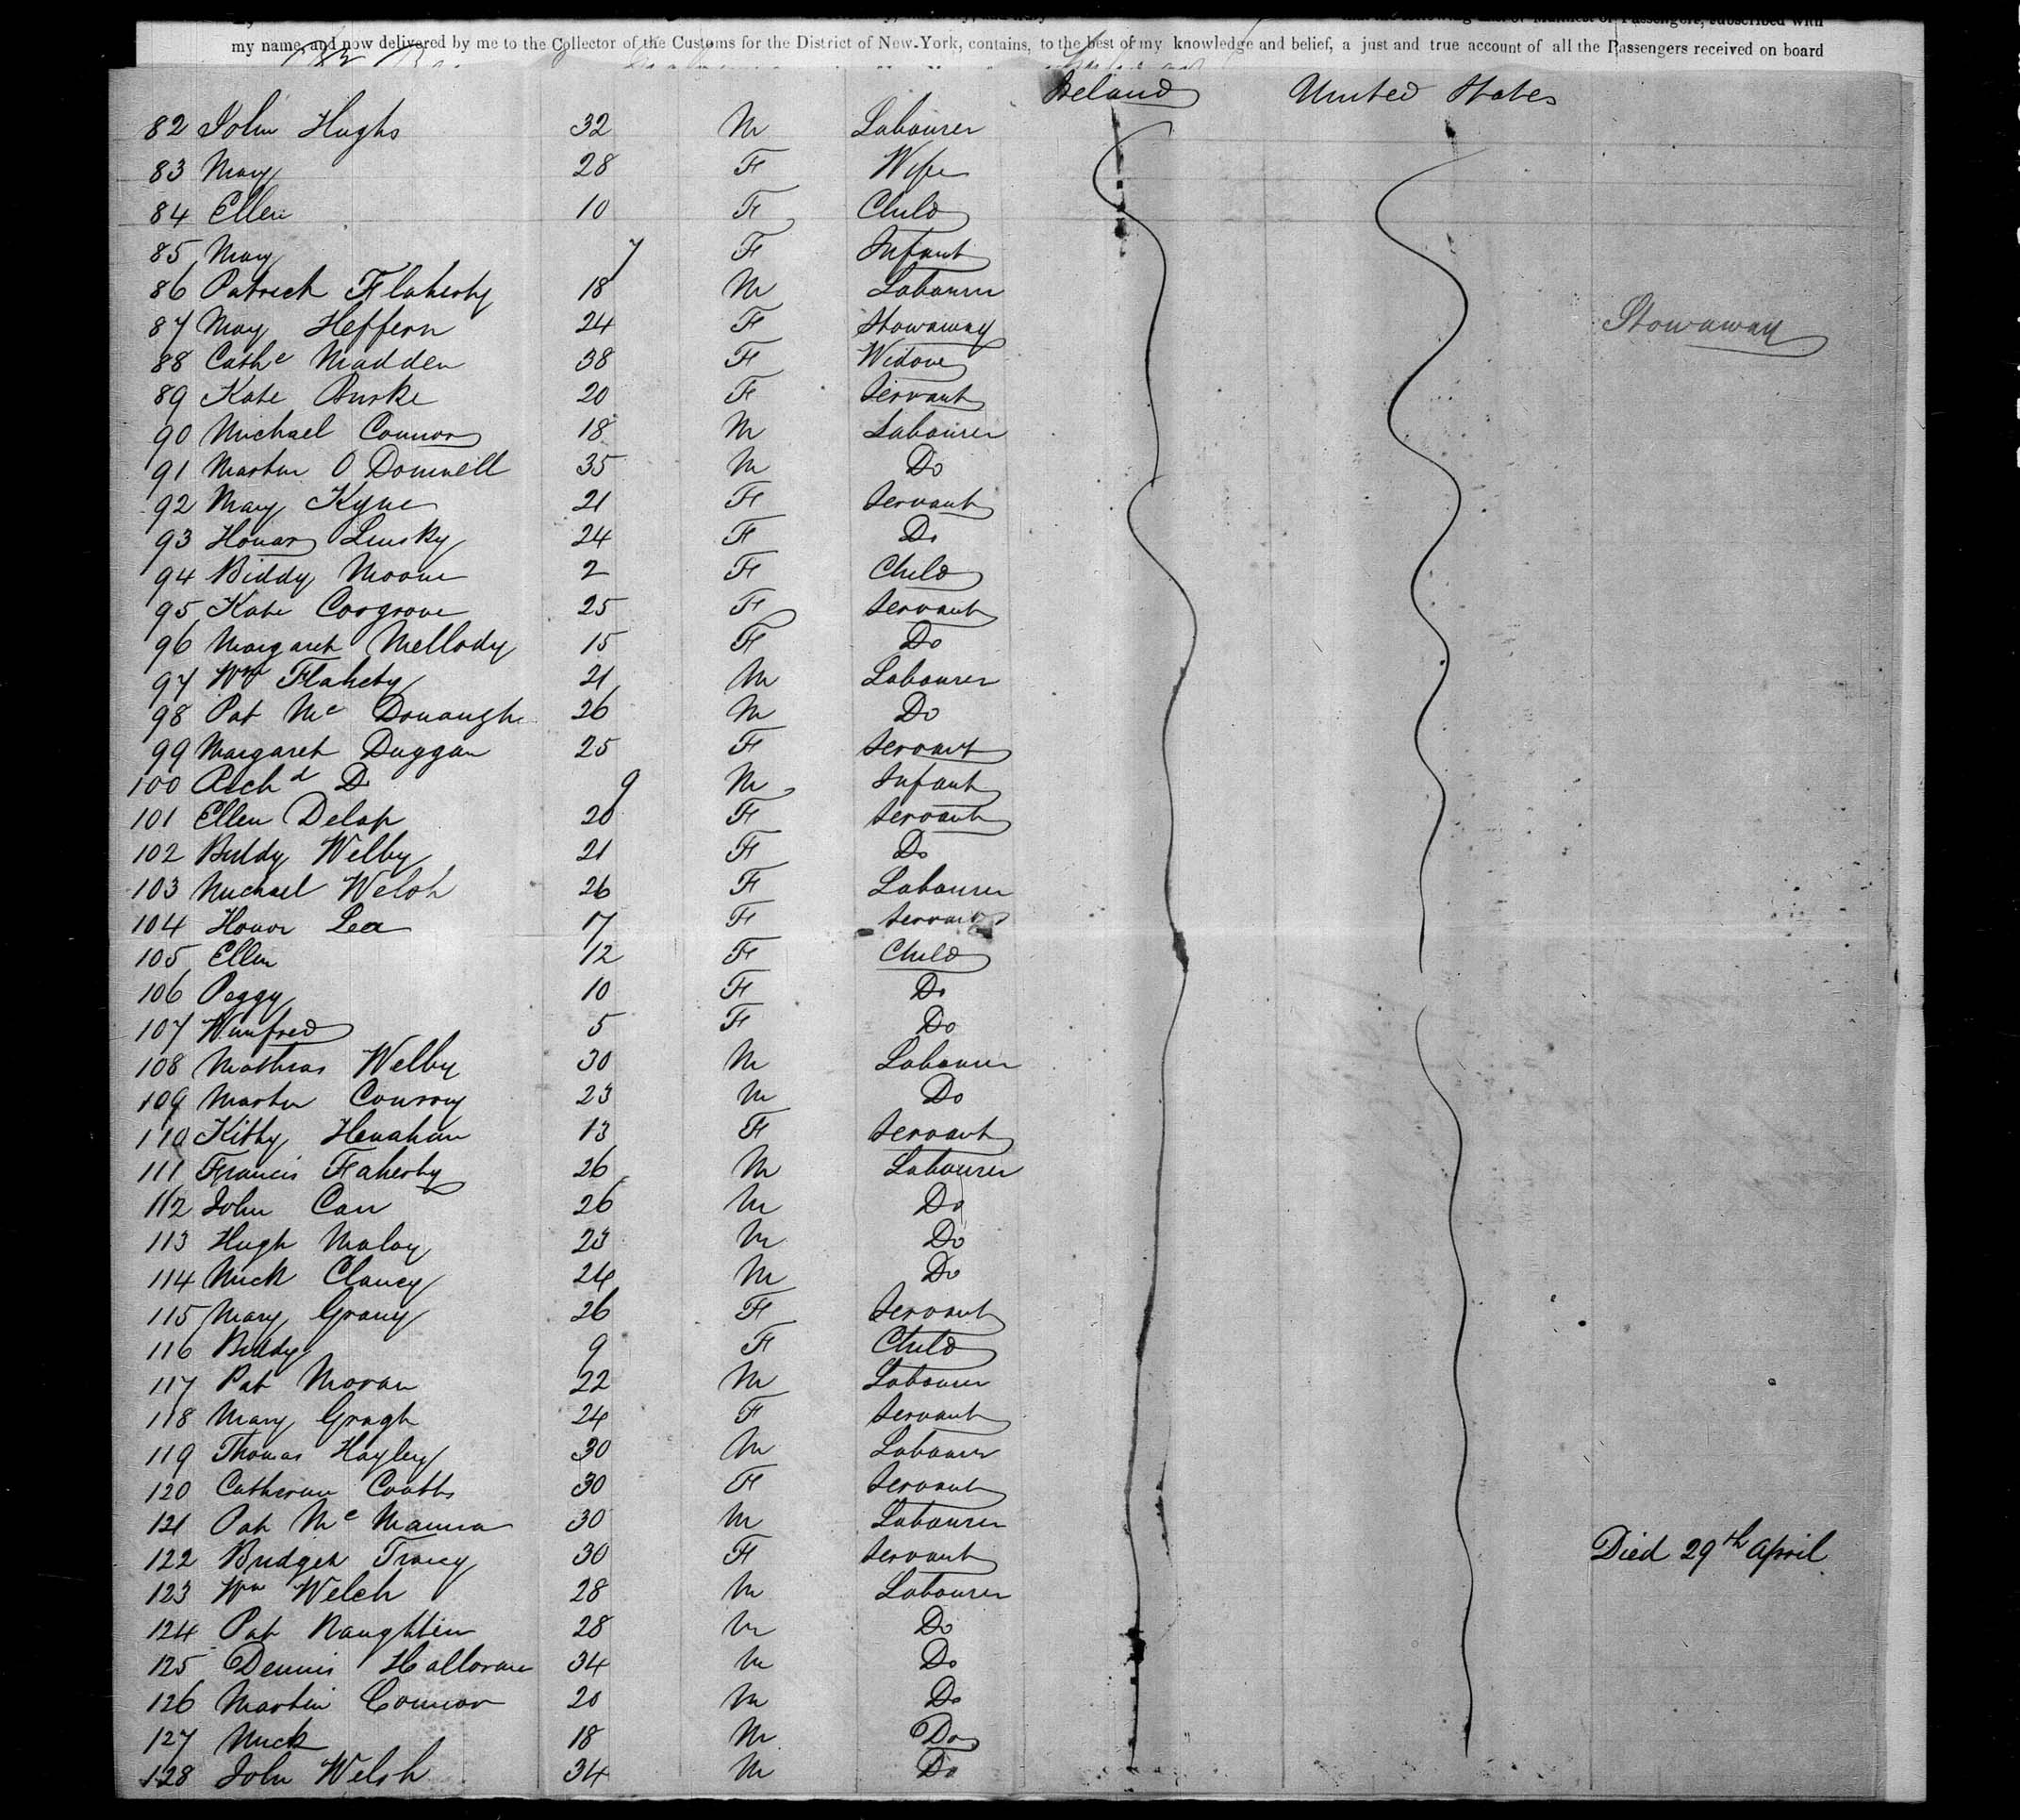 my name, and now delivered by me to the Collector of the Customs for the District of New-York, contains, to the best of my knowledge and belief, a just and true account of all the Passengers received on board
Ireland United States
82 John Hughs 32 M Labourer
83 Mary 28 F Wife
84 Ellen 10 F Child
85 Mary 7 F Infant
86 Patrick Flaherty 18 M Labourer
87 Mary Heffern 24 F Stowaway Stowaway
88 Cathe Madden 38 F Widow
89 Kate Burke 20 F Servant
90 Michael Connor 18 M Labourer
91 Martin O Donnell 35 M Do
92 Mary Kyne 21 F Servant
93 Honor Linsky 24 F Do
94 Biddy Moore 2 F Child
95 Kate Cosgrove 25 F Servant
96 Margaret Mellody 15 F Do
97 Wm Flahety 21 M Labourer
98 Pat Mc Donaugh 26 M Do
99 Margaret Duggan 25 F Servant
100 Richd Do 9 M Infant
101 Ellen Delap 20 F Servant
102 Biddy Welby 21 F Do
103 Michael Welsh 26 F Labourer
104 Honor Lea 17 F Servant
105 Ellen 12 F Child
106 Peggy 10 F Do
107 Winifred 5 F Do
108 Mathias Welby 30 M Labourer
109 Martin Conroy 23 M Do
110 Kitty Henahan 13 F Servant
111 Francis Faherty 26 M Labourer
112 John Carr 26 M Do
113 Hugh Maloy 23 M Do
114 Mick Clancy 24 M Do
115 Mary Grany 26 F Servant
116 Biddy 9 F Child
117 Pat Moran 22 M Labourer
118 Mary Gragh 24 F Servant
119 Thomas Hayley 30 M Labourer
120 Catherine Coatts 30 F Servant
121 Pat Mc Manna 30 M Labourer
122 Bridget Tracey 30 F Servant Died 29th April
123 Wm Welch 28 M Labourer
124 Pat Naughten 28 M Do
125 Dennis Halloran 34 M Do
126 Martin Connor 20 M Do
127 Mick 18 M Do
128 John Welsh 34 M Do